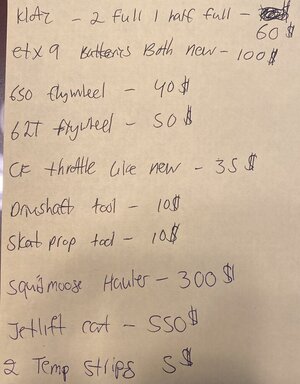 Klotz - 2 full 1 half full -
60$
etx 9 Batteries Both new - 100$
650 flywheel - 40$
62T flywheel - 50$
CF throttle like new - 35$
Driveshaft tool - 10$
Skat prop tool - 10$
Squidmoose Hauler - 300$
Jetlift cart - 550$
2 Temp strips 5$